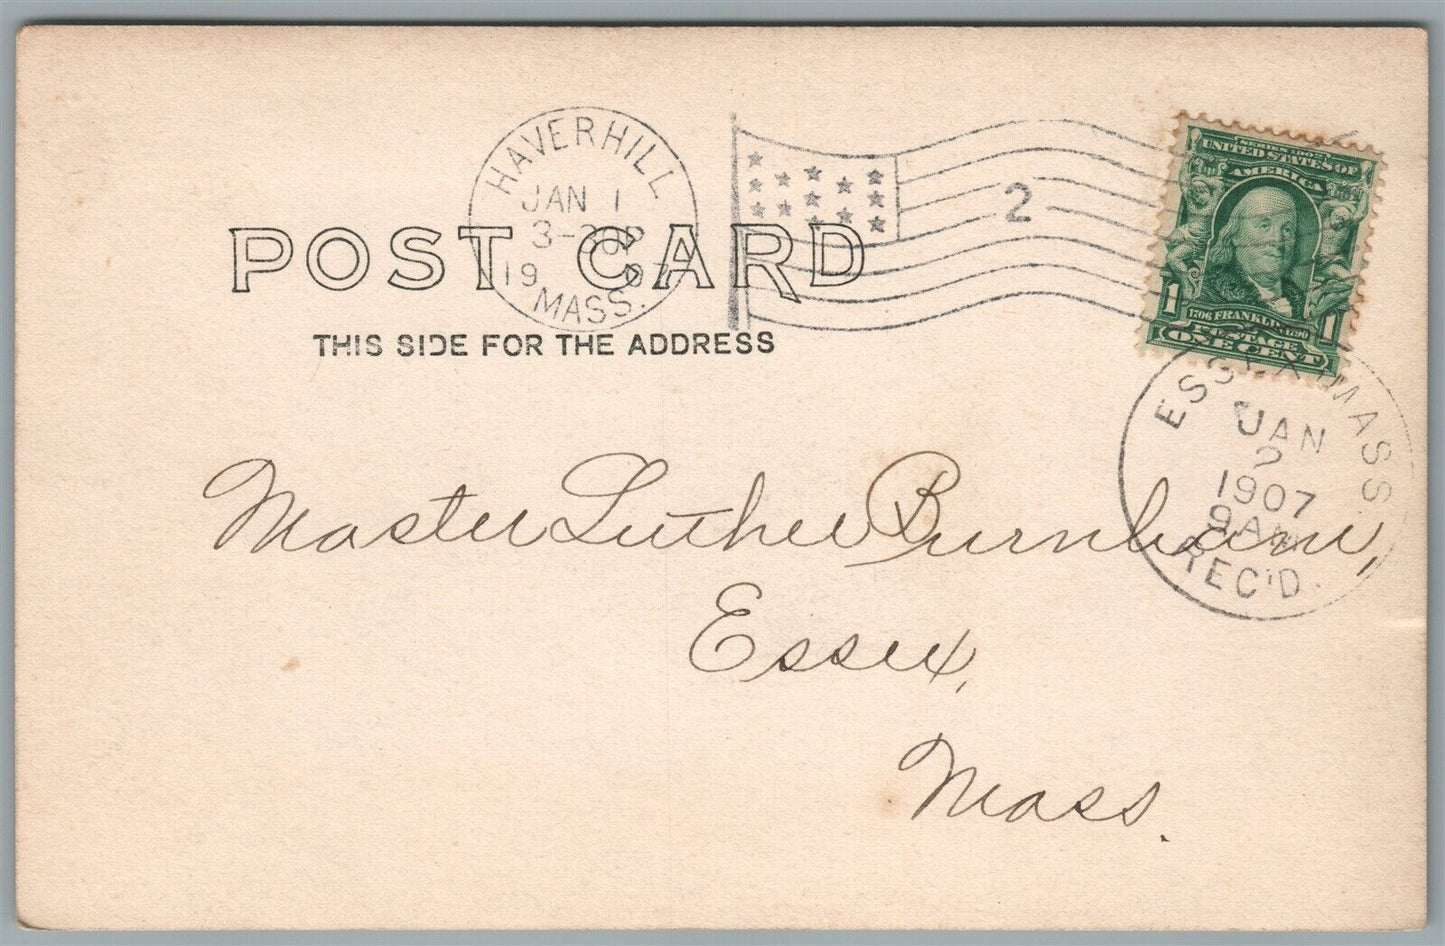 HAVERHILL
JAN 1
3-30P
1907
MASS.
2
SERIES 1902
UNITED STATES OF
AMERICA
1706 FRANKLIN 1790
1 1
POSTAGE
ONE CENT
POST CARD
THIS SIDE FOR THE ADDRESS
ESSEX, MASS
JAN
2
1907
9AM
REC'D.
Master Luther Burnham,
Essex,
Mass.